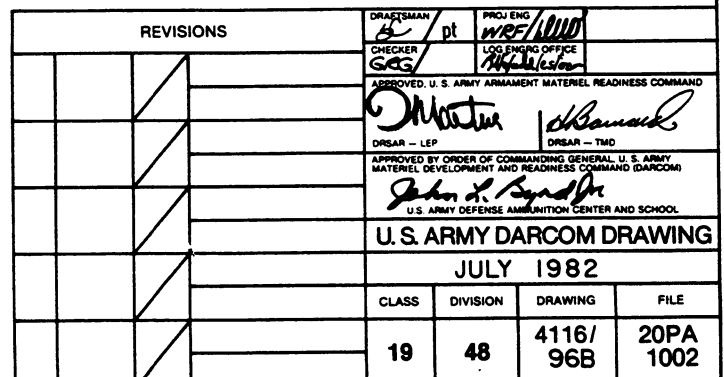 REVISIONS
DRAFTSMAN
pt
PROJ ENG
WRF
CHECKER
GRG
LOG ENGRG OFFICE
APPROVED, U. S. ARMY ARMAMENT MATERIEL READINESS COMMAND
DRSAR — LEP
DRSAR — TMD
APPROVED BY ORDER OF COMMANDING GENERAL, U. S. ARMY
MATERIEL DEVELOPMENT AND READINESS COMMAND (DARCOM)
John L. Byrd Jr
U.S. ARMY DEFENSE AMMUNITION CENTER AND SCHOOL
U. S. ARMY DARCOM DRAWING
JULY 1982
CLASS DIVISION DRAWING FILE
19 48 4116/ 20PA
96B 1002